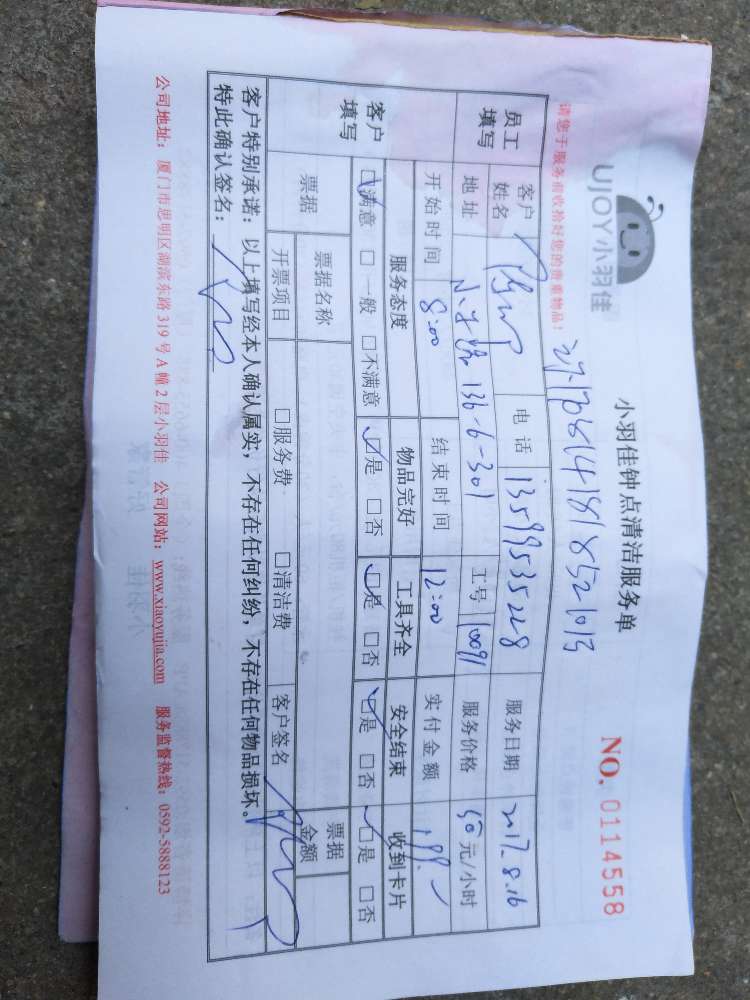 UJOY小羽佳
小羽佳钟点清洁服务单
NO. 0114558
请您于服务前收拾好您的贵重物品！
员工填写 客户姓名 电话 13599535228 服务日期 2017.8.16
地址 136-6-301 工号 10091 服务价格 50元/小时
开始时间 8:00 结束时间 12:00 实付金额 199.
客户填写 服务态度 物品完好 工具齐全 安全结束 收到卡片
☑满意 □一般 □不满意 ☑是 □否 ☑是 □否 ☑是 □否 ☑是 □否
票据 票据名称 票据金额
开票项目 □服务费 □清洁费 客户签名
客户特别承诺：以上填写经本人确认属实，不存在任何纠纷，不存在任何物品损坏。
特此确认签名：
公司地址：厦门市思明区湖滨东路319号A幢2层小羽佳 公司网站：www.xiaoyujia.com 服务监督热线：0592-5888123